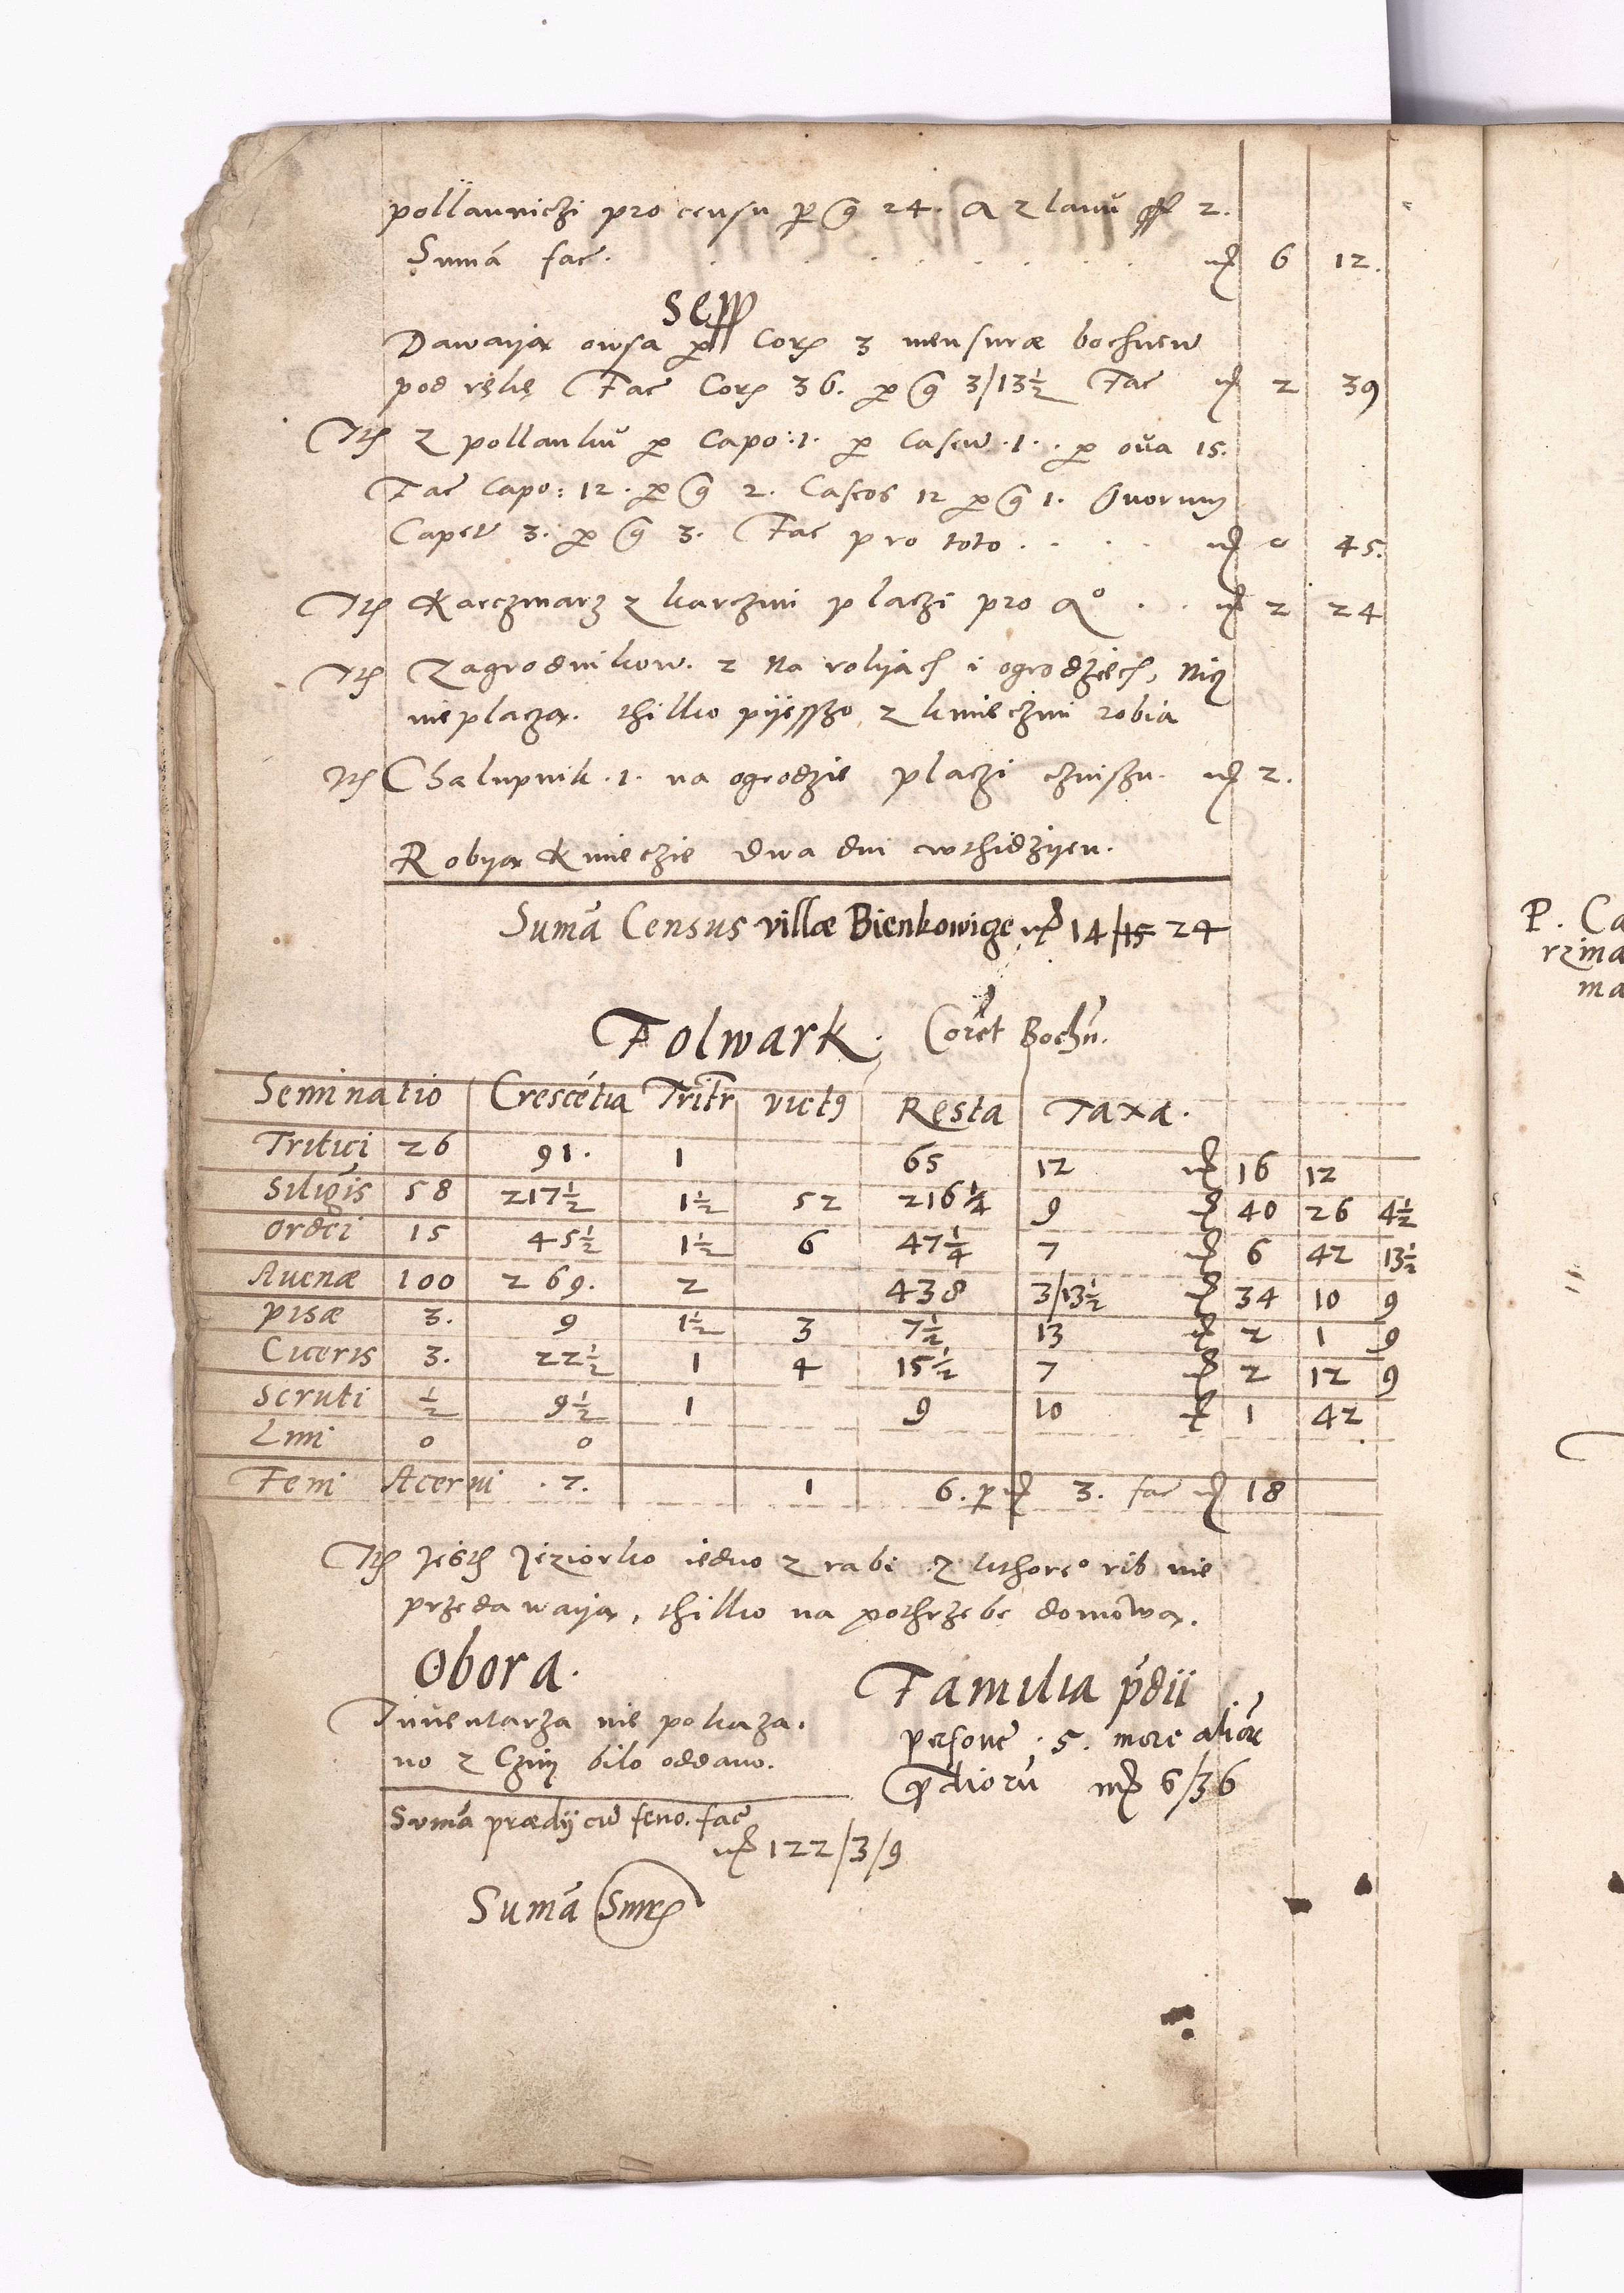 pollanniczi pro censu per g 24. a z lanu 2.
Sumã fac. . . . . . . . . . mr 6 12.
Sepp
Dawaya owsa per Cor 3 mensuræ bochnen
pod rękę Fac Cor 36. per g 3/13½ Fac mr 2 39
Itē z pollanku per Capo: 1. per Caseu. 1. per oua 15.
Fac Capo: 12. per g 2. Caseos 12 per g 1. Ouorum
Capet 3. per g 3. Fac pro toto . . . . mr 0 45.
Itē Karczmarz z karczmi placzi pro Ao . . mr 2 24
Itē Zagrodnikow. 2 Na rolijach i ogrodziech, nicz
nieplacza. thilko pijesszo z kmieczmi robia
Itē Chalupnik .1. na ogrodzie placzi czinszu. mr 2.
Robya Kmieczie dwa dni wthidzijen.
Sumã Census villæ Bienkowicze mr 14/15 24
Folwark. Coret Bochn.
Seminatio Crescētia Tritr vict9 Resta Taxa.
Tritici 26 91. 1 65 12 mr 16 12
Siligis 58 217½ 1½ 52 216¼ 9 mr 40 26 4½
Ordei 15 45½ 1½ 6 47¼ 7 mr 6 42 13½
Auenæ 100 269. 2 438 3/13½ mr 34 10 9
pisæ 3. 9 1½ 3 7½ 13 mr 2 1 9
Ciceris 3. 22½ 1 4 15½ 7 mr 2 12 9
Scruti ½ 9½ 1 9 10 mr 1 42
Lini 0 0
Feni Acerui .7. 1 6. per mr 3. fac mr 18
Itē Jesth Jeziorko iedno z rabi z kthore° rib nie
przedawaya, thilko na pothrzebe domowa.
Obora.
Inuentarza nie pokaza.
no z Czim bilo oddano.
Familia p̄dii
persone . 5. more alior
prædiorū mr 6/36
Sumã prædij cū feno. fac
mr 122/3/9
Sumã Smr
P. Ca
rzma
ma